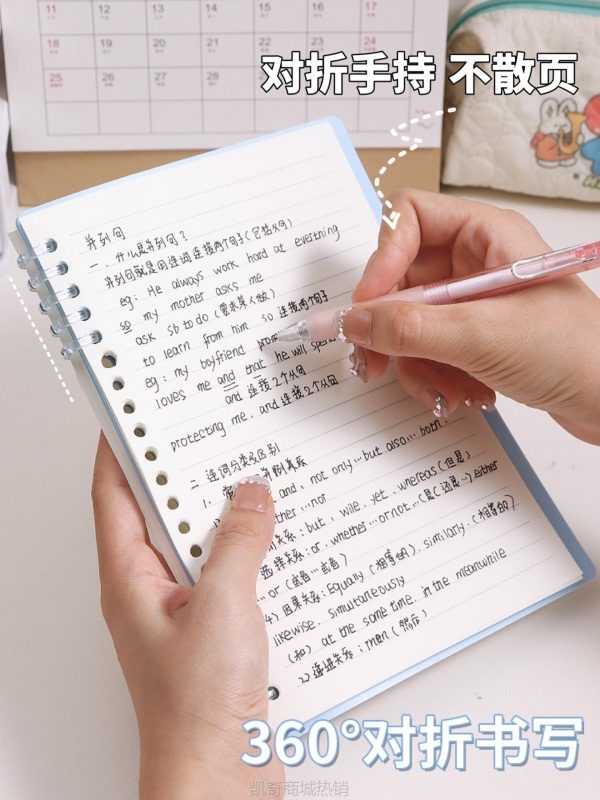 11 12 13 14 15 16 17
18 19 20 21 22 23 24
25 26 27 28
对折手持 不散页
并列句
一．什么是并列句？
并列句就是用连词连接两个句子(包括从句)
eg: He always work hard at everthing
so my mother asks me
ask sb to do (要求某人做)
to learn from him so 连接两个句子
eg: my boyfriend
loves me and that he will
and 连接2个从句
protecting me. and 连接2个从句
二 连词分类及区别
and, not only…but also… both.
…nor
关系: but, wile, yet, whereas (但是)
选择关系: or, whether…or not…(是(还是…) either
…or (或者…或者)
4) 因果关系: Equally (相等的). similary. (相等的)
likewise. simultaneously
(和) at the same time. in the meanwhile
360°对折书写
凯奇商城热销